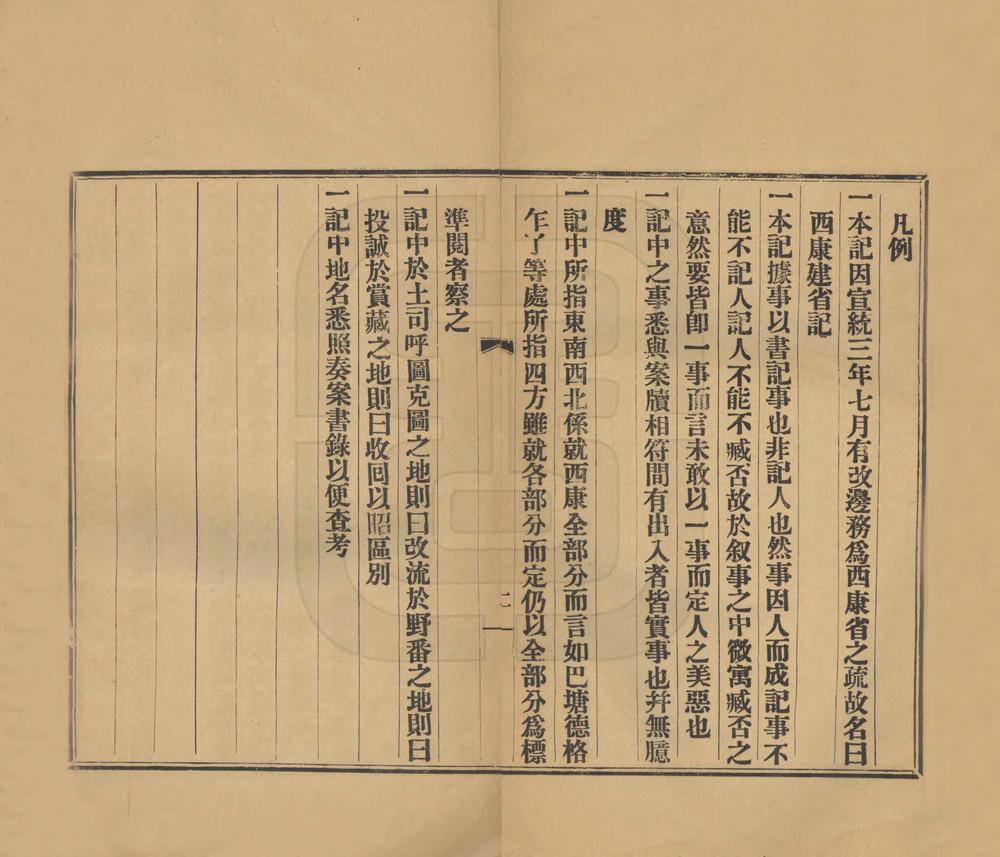 凡例
一本記因宣統三年七月有改邊務爲西康省之疏故名曰
西康建省記
一本記據事以書記事也非記人也然事因人而成記事不
能不記人記人不能不臧否故於叙事之中微寓臧否之
意然要皆卽一事而言未敢以一事而定人之美惡也
一記中之事悉與案牘相符間有出入者皆實事也幷無臆
度
一記中所指東南西北係就西康全部分而言如巴塘德格
乍丫等處所指四方雖就各部分而定仍以全部分爲標
二
準閱者察之
一記中於土司呼圖克圖之地則曰改流於野番之地則曰
投誠於賞藏之地則曰收回以昭區別
一記中地名悉照奏案書錄以便查考